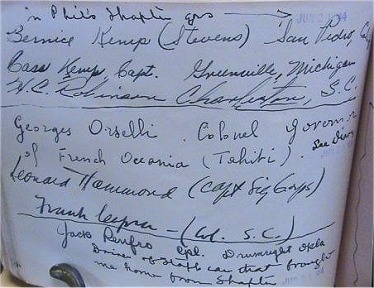 in Phil's Shafter gps JUN 2 '44
Bernice Kemp (Stevens) San Pedro,
Cass Kemp, Capt. Greenville, Michigan
H.C. Robinson Charleston, S.C.
Georges Orselli. Colonel Govern
of French Oceania (Tahiti). See Diary
Leonard Hammond (Capt Sig Corps)
Frank (Col. S.C.)
Jack Renfro Cpl. Drumright Okla
Driver of staff car that brought
me home from Shafter